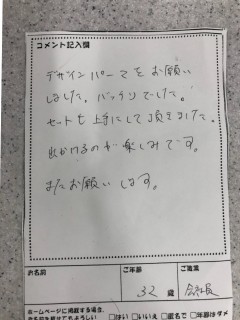 コメント記入欄
デザインパーマをお願い
しました。バッチリでした。
セットも上手にして頂きました。
出かけるのが楽しみです。
またお願いします。
お名前
ご年齢
ご職業
32歳
会社員
ホームページに掲載する場合、
名前を載せてもよろしい
□はい □いいえ □匿名で □年齢はダメ